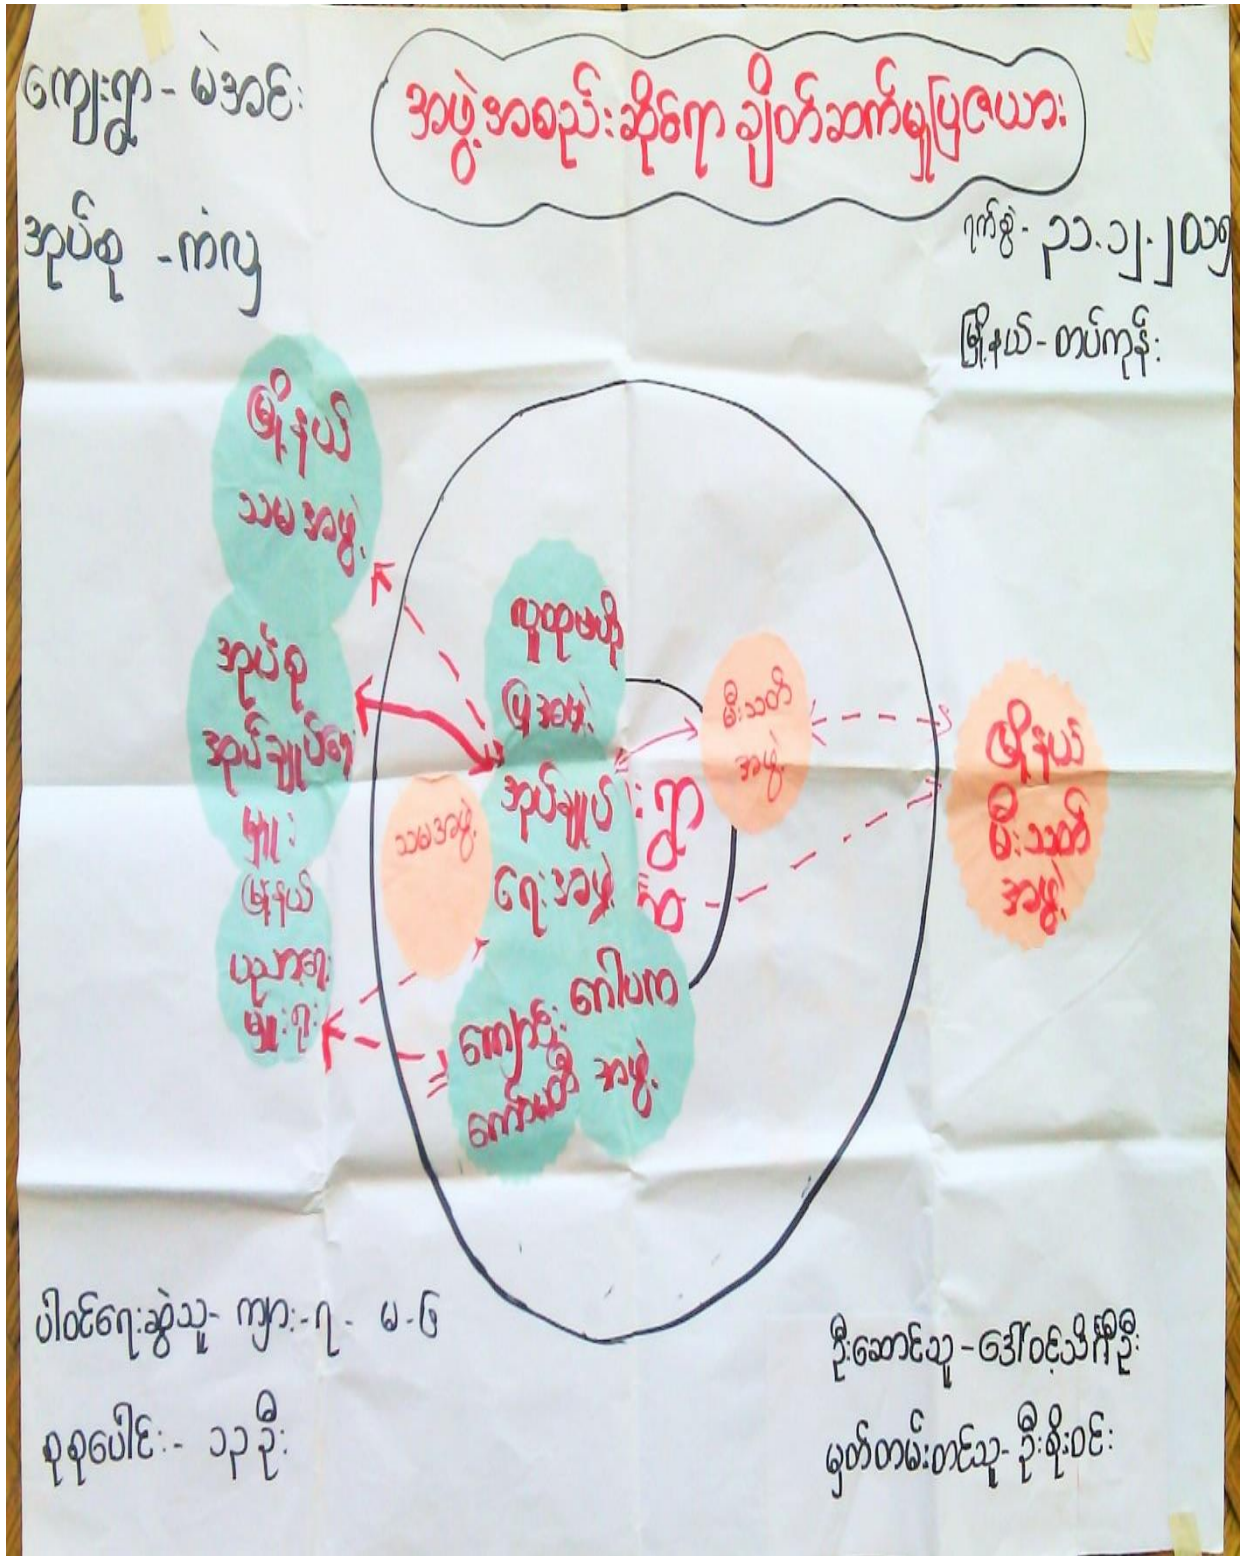 ကျေးရွာ - မဲအင်း
အဖွဲ့အစည်းဆိုင်ရာ ချိတ်ဆက်မှုပြဇယား
အုပ်စု - ကံလှ
ရက်စွဲ - ၃၁.၁၂.၂၀၁၅
မြို့နယ် - တပ်ကုန်း
မြို့နယ်
သမအဖွဲ့
အုပ်စု
အုပ်ချုပ်ရေး
မှူး
မြို့နယ်
ပညာရေး
မှူးရုံး
လူထုဗဟို
ပြုအဖွဲ့
အုပ်ချုပ်
ရေးအဖွဲ့
သမအဖွဲ့
မီးသတ်
အဖွဲ့
းရွာ
ဂေါပက
အဖွဲ့
ကျောင်း
ကော်မတီ
မြို့နယ်
မီးသတ်
အဖွဲ့
ပါဝင်ရေးဆွဲသူ - ကျား - ၇ - မ - ၆
စုစုပေါင်း - ၁၃ ဦး
ဦးဆောင်သူ - ဒေါ်ဝင့်သိင်္ဂီဦး
မှတ်တမ်းတင်သူ - ဦးစိုးဝင်း